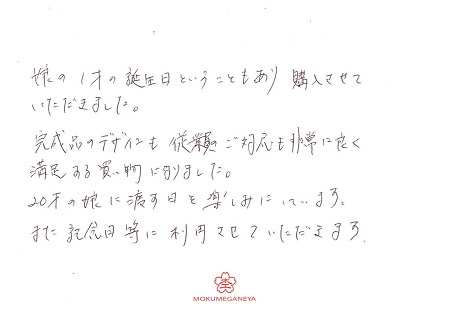 娘の1才の誕生日ということもあり購入させて
いただきました。
完成品のデザインも従業員のご対応も非常に良く
満足する買い物になりました。
20才の娘に渡す日を楽しみにしています。
また記念日等に利用させていただきます。
MOKUMEGANEYA